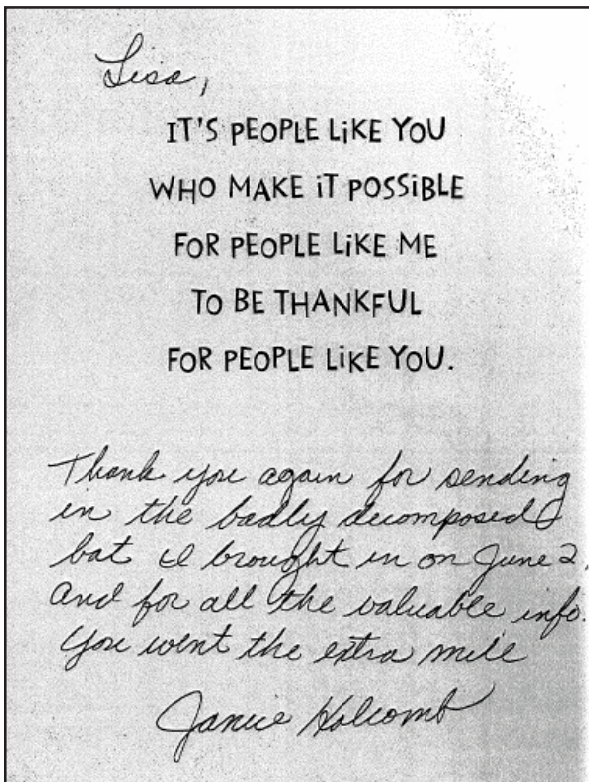 Lisa,
IT'S PEOPLE LiKE YOU
WHO MAKE iT POSSiBLE
FOR PEOPLE LiKE ME
TO BE THANKFUL
FOR PEOPLE LiKE YOU.
Thank you again for sending
in the badly decomposed
bat I brought in on June 2,
and for all the valuable info.
You went the extra mile
Janice Holcomb